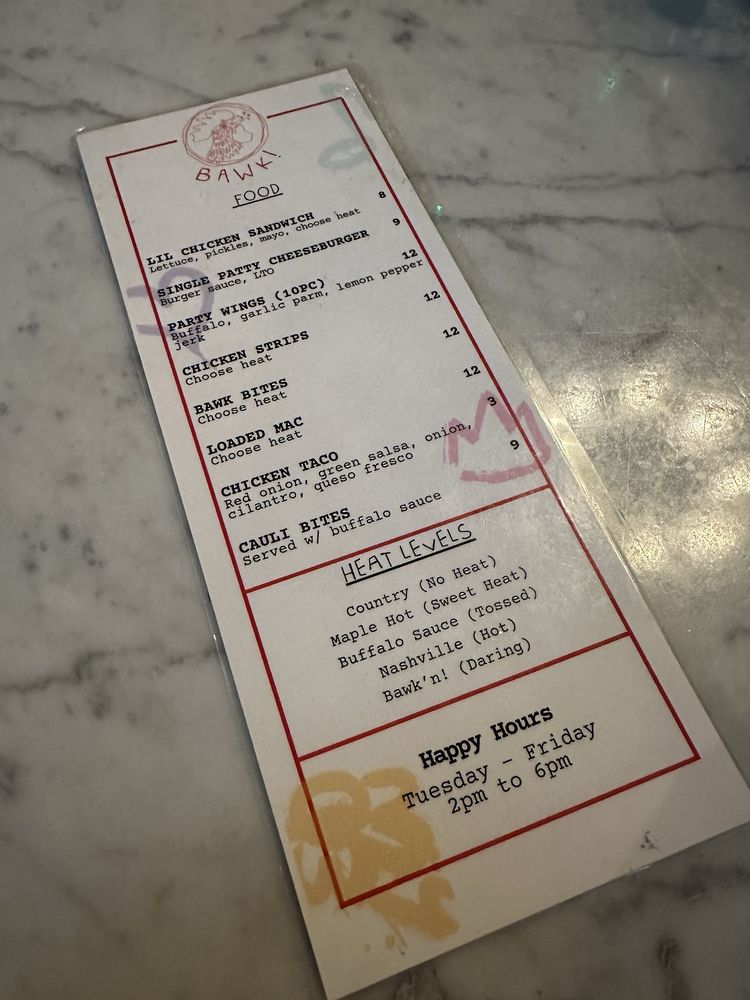 BAWK!
FOOD
LIL CHICKEN SANDWICH 8
Lettuce, pickles, mayo, choose heat
SINGLE PATTY CHEESEBURGER 9
Burger sauce, LTO
PARTY WINGS (10PC) 12
Buffalo, garlic parm, lemon pepper
jerk
CHICKEN STRIPS 12
Choose heat
BAWK BITES 12
Choose heat
LOADED MAC 12
Choose heat
CHICKEN TACO 3
Red onion, green salsa, onion,
cilantro, queso fresco
CAULI BITES 9
Served w/ buffalo sauce
HEAT LEVELS
Country (No Heat)
Maple Hot (Sweet Heat)
Buffalo Sauce (Tossed)
Nashville (Hot)
Bawk'n! (Daring)
Happy Hours
Tuesday - Friday
2pm to 6pm